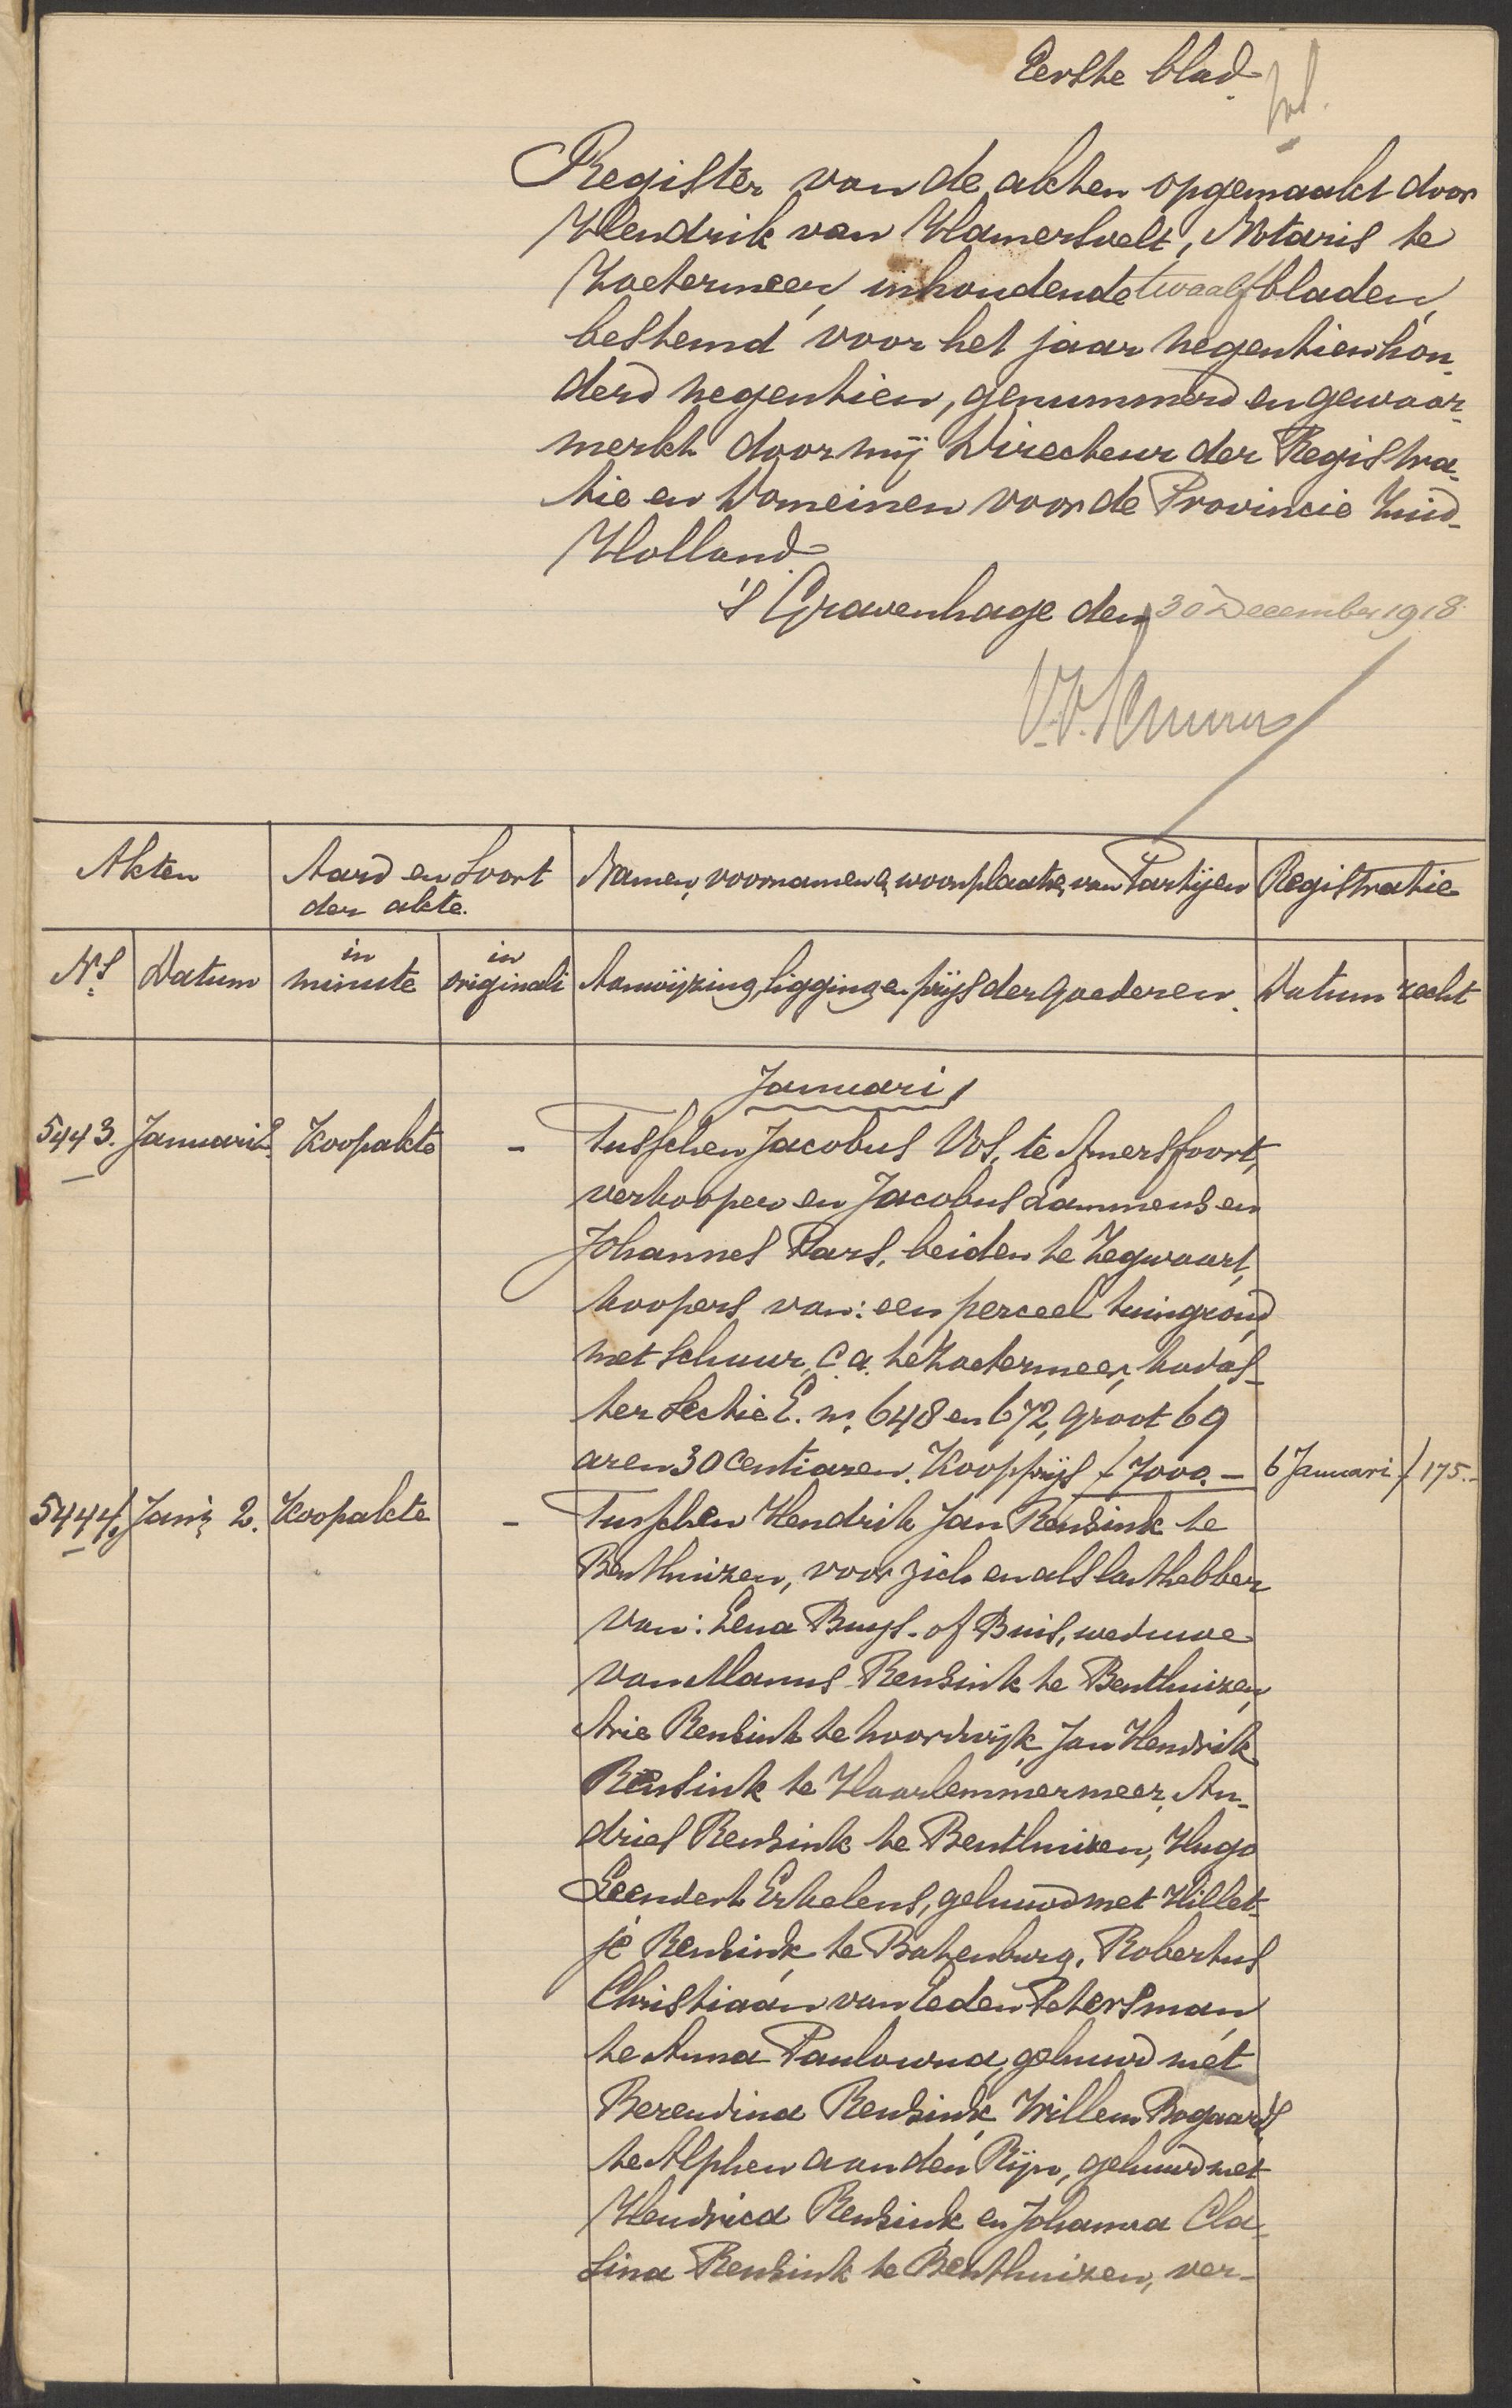 Eerste blad.
Register van de akten opgemaakt door
Hendrik van Hamersvelt, Notaris te
Zoetermeer, inhoudende twaalf bladen,
bestemd voor het jaar negentienhon-
derd negentien, genummerd en gewaar-
merkt door mij Directeur der Registra-
tie en Domeinen voor de Provincie Zuid-
Holland.
's Gravenhage den 30 December 1918.
Akten Aard en Soort Namen, voornamen en woonplaats van Partijen Registratie
der akte.
Ns Datum in minute in originali Aanwijzing, ligging en prijs der goederen. Datum recht
Januari
5443. Januari 2. Koopakte - Tusschen Jacobus Vos, te Amersfoort,
verkooper en Jacobus Lammens en
Johannes Pars, beiden te Zegwaart,
koopers van: een perceel tuingrond
met schuur, c.a. te Zoetermeer, kadas-
ter Sectie E. nr. 648 en 672, groot 69
aren 30 centiaren. Koopprijs f 7000.- 6 Januari f 175.-
5444. Jani 2. Koopakte - Tusschen Hendrik Jan Rensink te
Benthuizen, voor zich en als lasthebber
van: Lena Buys of Buis, weduwe
van Manus Rensink te Benthuizen,
Arie Rensink te Noordwijk, Jan Hendrik
Rensink te Haarlemmermeer, An-
dries Rensink te Benthuizen, Hugo
Leendert Erkelens, gehuwd met Hillet-
je Rensink te Batenburg, Robertus
Christiaan van Eeden Petersman
te Anna Paulowna, gehuwd met
Berendina Rensink, Willem Bogaards
te Alphen aan den Rijn, gehuwd met
Hendrica Rensink en Johanna Cla-
sina Rensink te Benthuizen, ver-